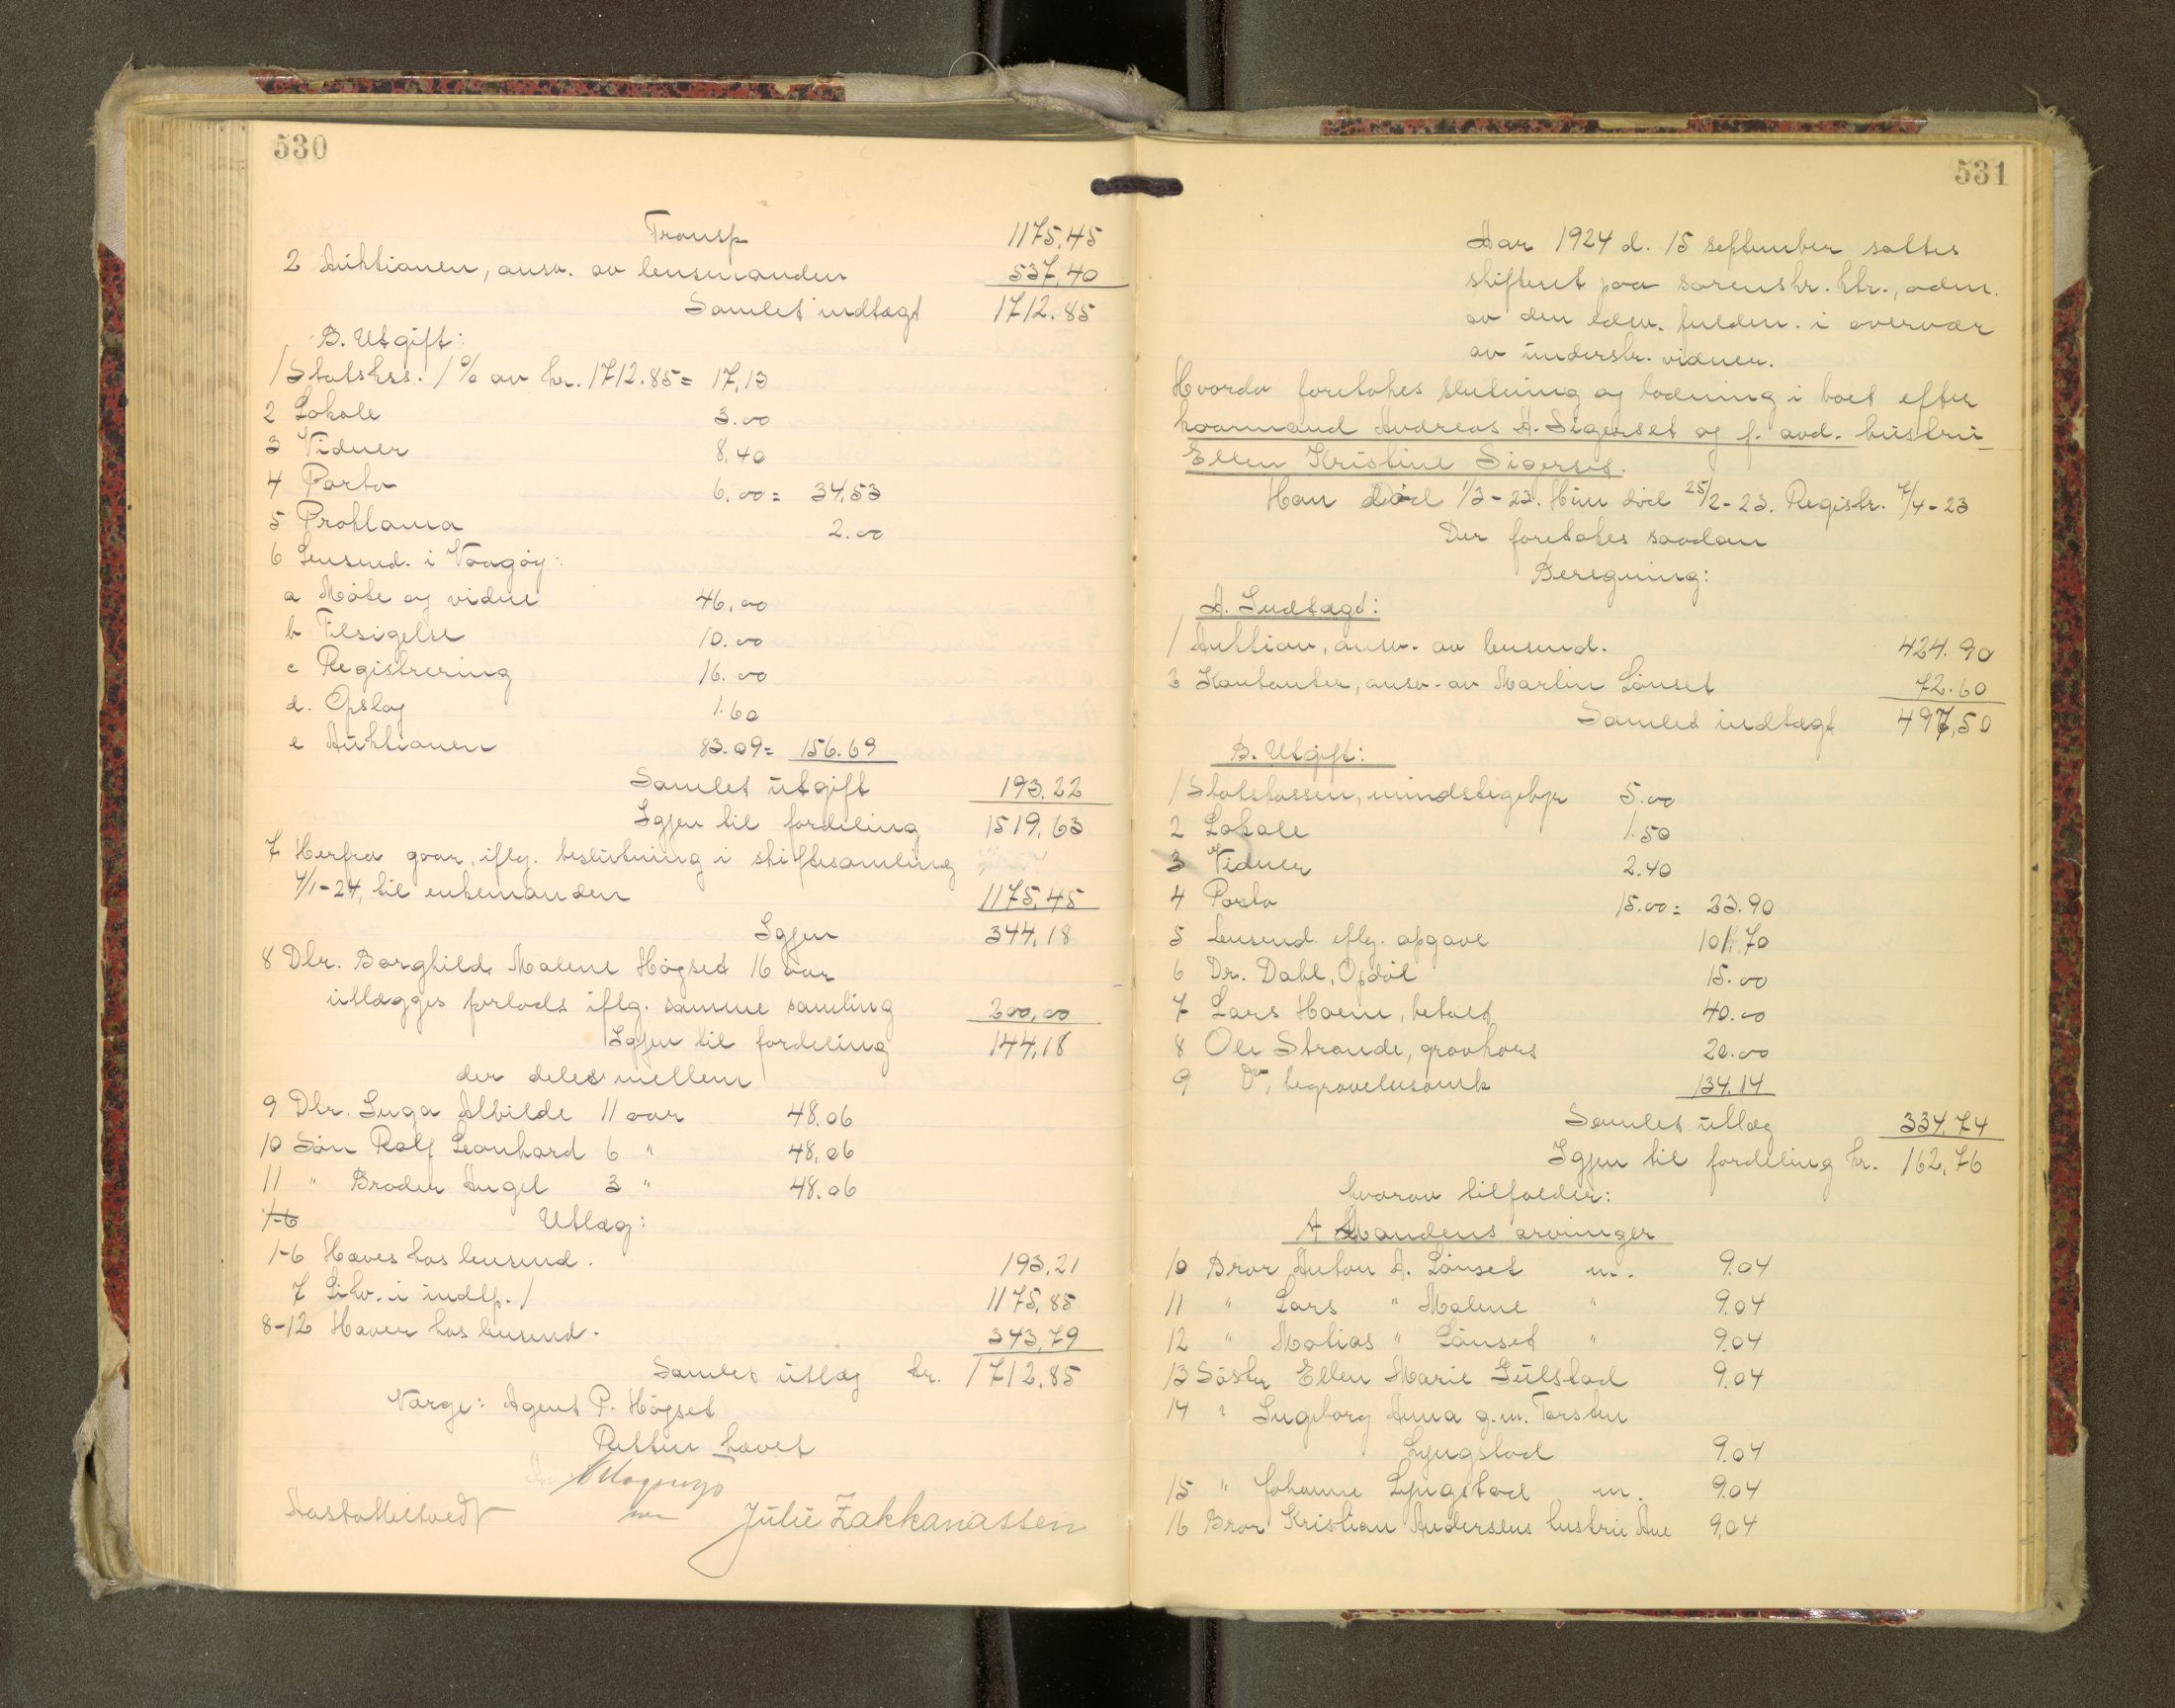 530
Transp 1175.45
2 Auktionen, ansv. av lensmanden 537.40
Samlet indtægt 1712.85
B. Utgift:
1 Statskss. 1% av kr. 1712.85 = 17,13
2 Lokale 3.00
3 Vidner 8.40
4 Porto 6.00 = 34.53
5 Proklama 2.00
6 Lensmd. i Vaagøy:
a Møte og vidne 46.00
b Tilsigelse 10.00
c Registrering 16.00
d. Opslag 1.60
e Auktionen 83.09 = 156.69
Samlet utgift 193.22
Igjen til fordeling 1519,63
7 Herfra gaar, iflg. beslutning i skiftesamling
4/1-24, til enkemanden 1175,45
Igjen 344,18
8 Dtr. Borghild Malene Høgset 16 aar
utlægges forlods iflg. samme samling 200,00
Igjen til fordeling 144,18
der deles mellem
9 Dtr. Inga Alvilde 11 aar 48.06
10 Søn Rolf Leonhard 6 " 48.06
11 " Broder Angel 3 " 48.06
1-6 Utlæg:
1-6 Haves hos lensmd. 193.21
7 Likv. i indtp. 1 1175,85
8-12 Haver hos lensmd. 343,79
Samlet utlæg kr. 1712.85
Værge: Agent P. Høgset
Retten hævet
Julie Zakkariassen
531
Aar 1924 d. 15 september sattes
skifteret paa sorenskr. ktr., adm.
av den edsv. fuldm. i overvær
av underskr. vidner.
Hvorda foretokes slutning og lodning i boet efter
kaarmand Andreas A. Sigerset og f. avd. hustru
Ellen Kristine Sigerset.
Han død 1/3-23. Hun død 25/2-23. Registr. 7/4-23
Der foretokes saadan
Beregning:
A. Indtægt:
1 Auktion, ansv. av lensmd. 424.90
2 Kontanter, ansv. av Martin Lønset 72.60
Samlet indtægt 497,50
B. Utgift:
1 Statskassen, mindstegebyr 5.00
2 Lokale 1.50
3 Vidner 2.40
4 Porto 15.00 = 23.90
5 Lensmd. iflg. opgave 101.70
6 Dr. Dahl, Opdøl 15.00
7 Lars Hoem, betalt 40.00
8 Ole Strande, gravkors 20.00
9 Do, begravelsesomk 134.14
Samlet utlæg 334.74
Igjen til fordeling kr. 162,76
hvorav tilfalder:
A Mandens arvinger
10 Bror Anton A. Lønset m. 9.04
11 " Lars " Malene " 9.04
12 " Matias " Lønset " 9.04
13 Søster Ellen Marie Gulstad 9.04
14 " Ingeborg Anna g.m. Torsten
Lyngstad 9.04
15 " Johanne Lyngstad m. 9.04
16 Bror Kristian Andersens hustru Ane 9.04